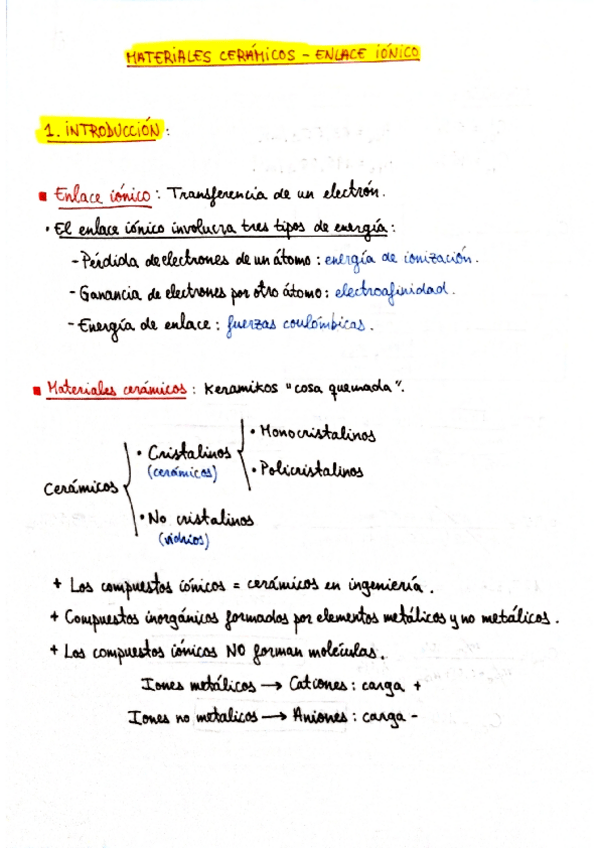 MATERIALES CERÁMICOS - ENLACE IÓNICO
1. INTRODUCCIÓN:
▪ Enlace iónico: Transferencia de un electrón.
· El enlace iónico involucra tres tipos de energía:
- Pérdida de electrones de un átomo: energía de ionización.
- Ganancia de electrones por otro átomo: electroafinidad.
- Energía de enlace: fuerzas coulómbicas.
▪ Materiales cerámicos: Keramikos "cosa quemada".
Cerámicos
· Cristalinos
(cerámicas)
· Monocristalinos
· Policristalinos
· No cristalinos
(vidrios)
+ Los compuestos iónicos = cerámicos en ingeniería.
+ Compuestos inorgánicos formados por elementos metálicos y no metálicos.
+ Los compuestos iónicos NO forman moléculas.
Iones metálicos → Cationes: carga +
Iones no metalicos → Aniones: carga -